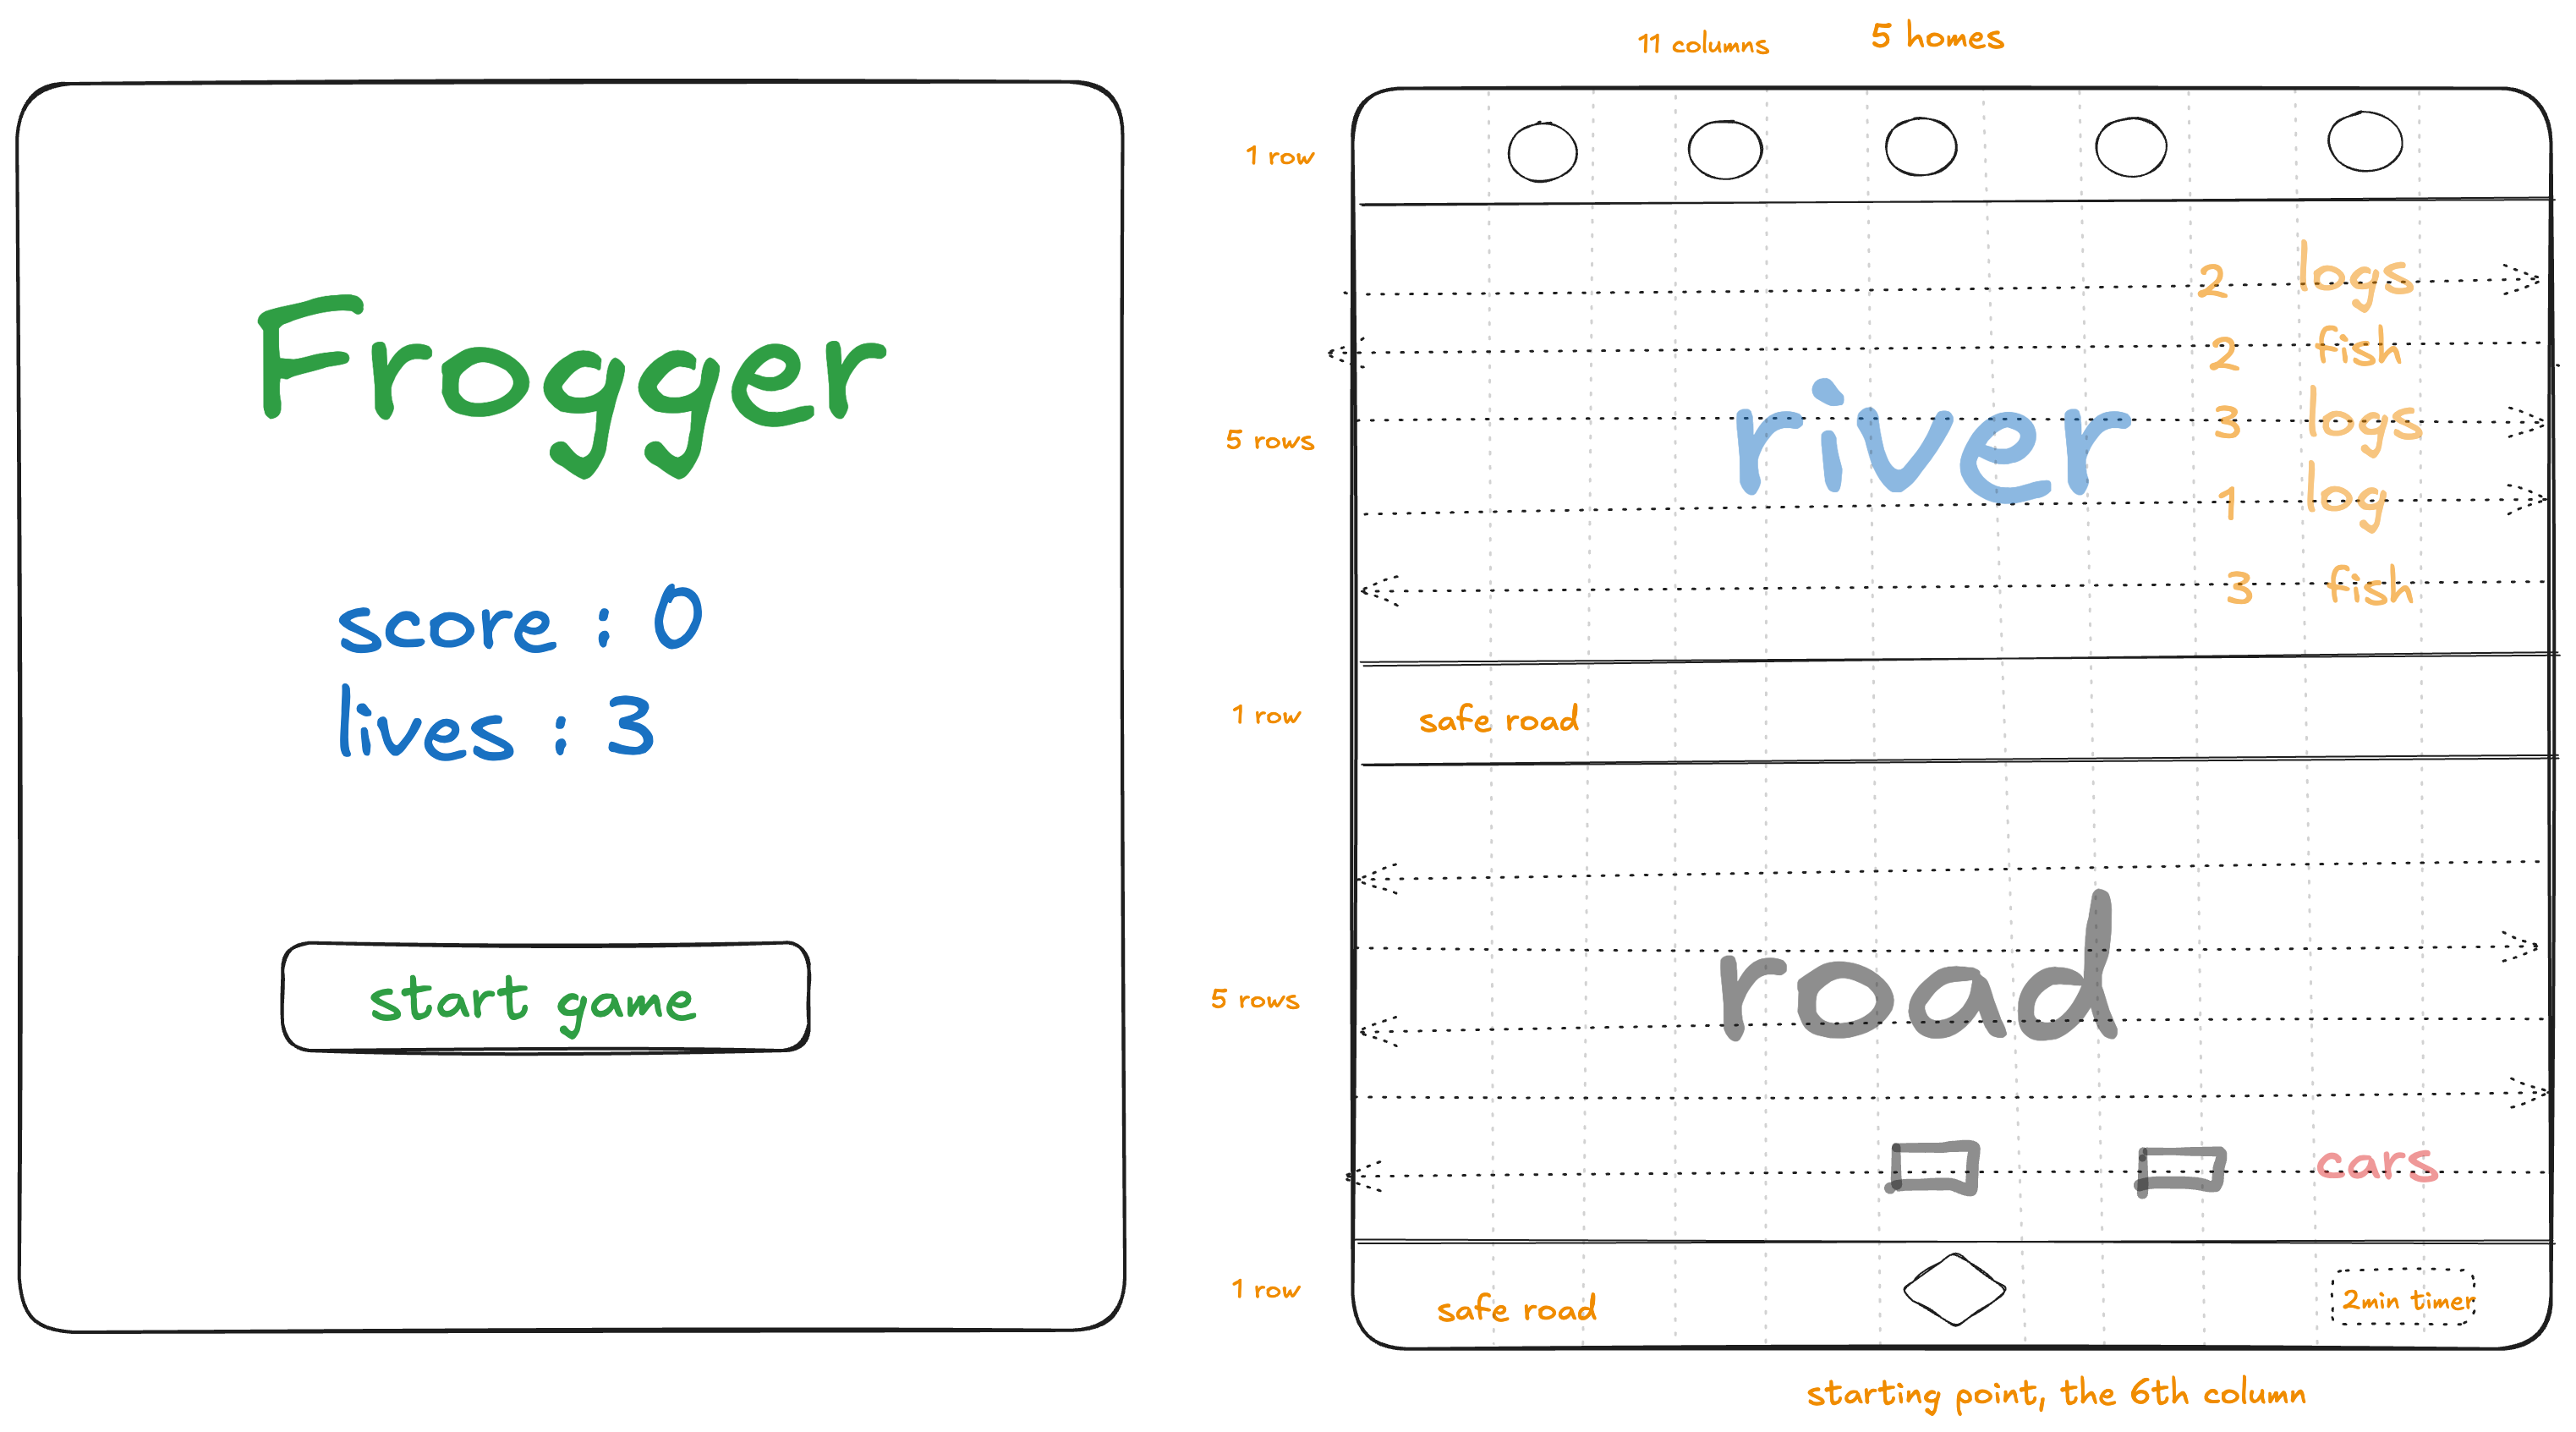 Frogger
score : 0
lives : 3
start game
11 columns
5 homes
1 row
2 logs
2 fish
river
3 logs
5 rows
1 log
3 fish
1 row
safe road
road
5 rows
cars
1 row
safe road
2min timer
starting point, the 6th column